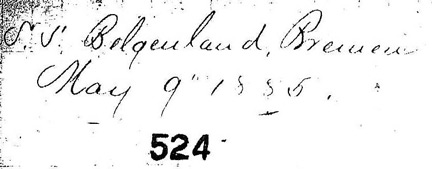 S.S. Belgenland, Bremen
May 9" 1885.
524